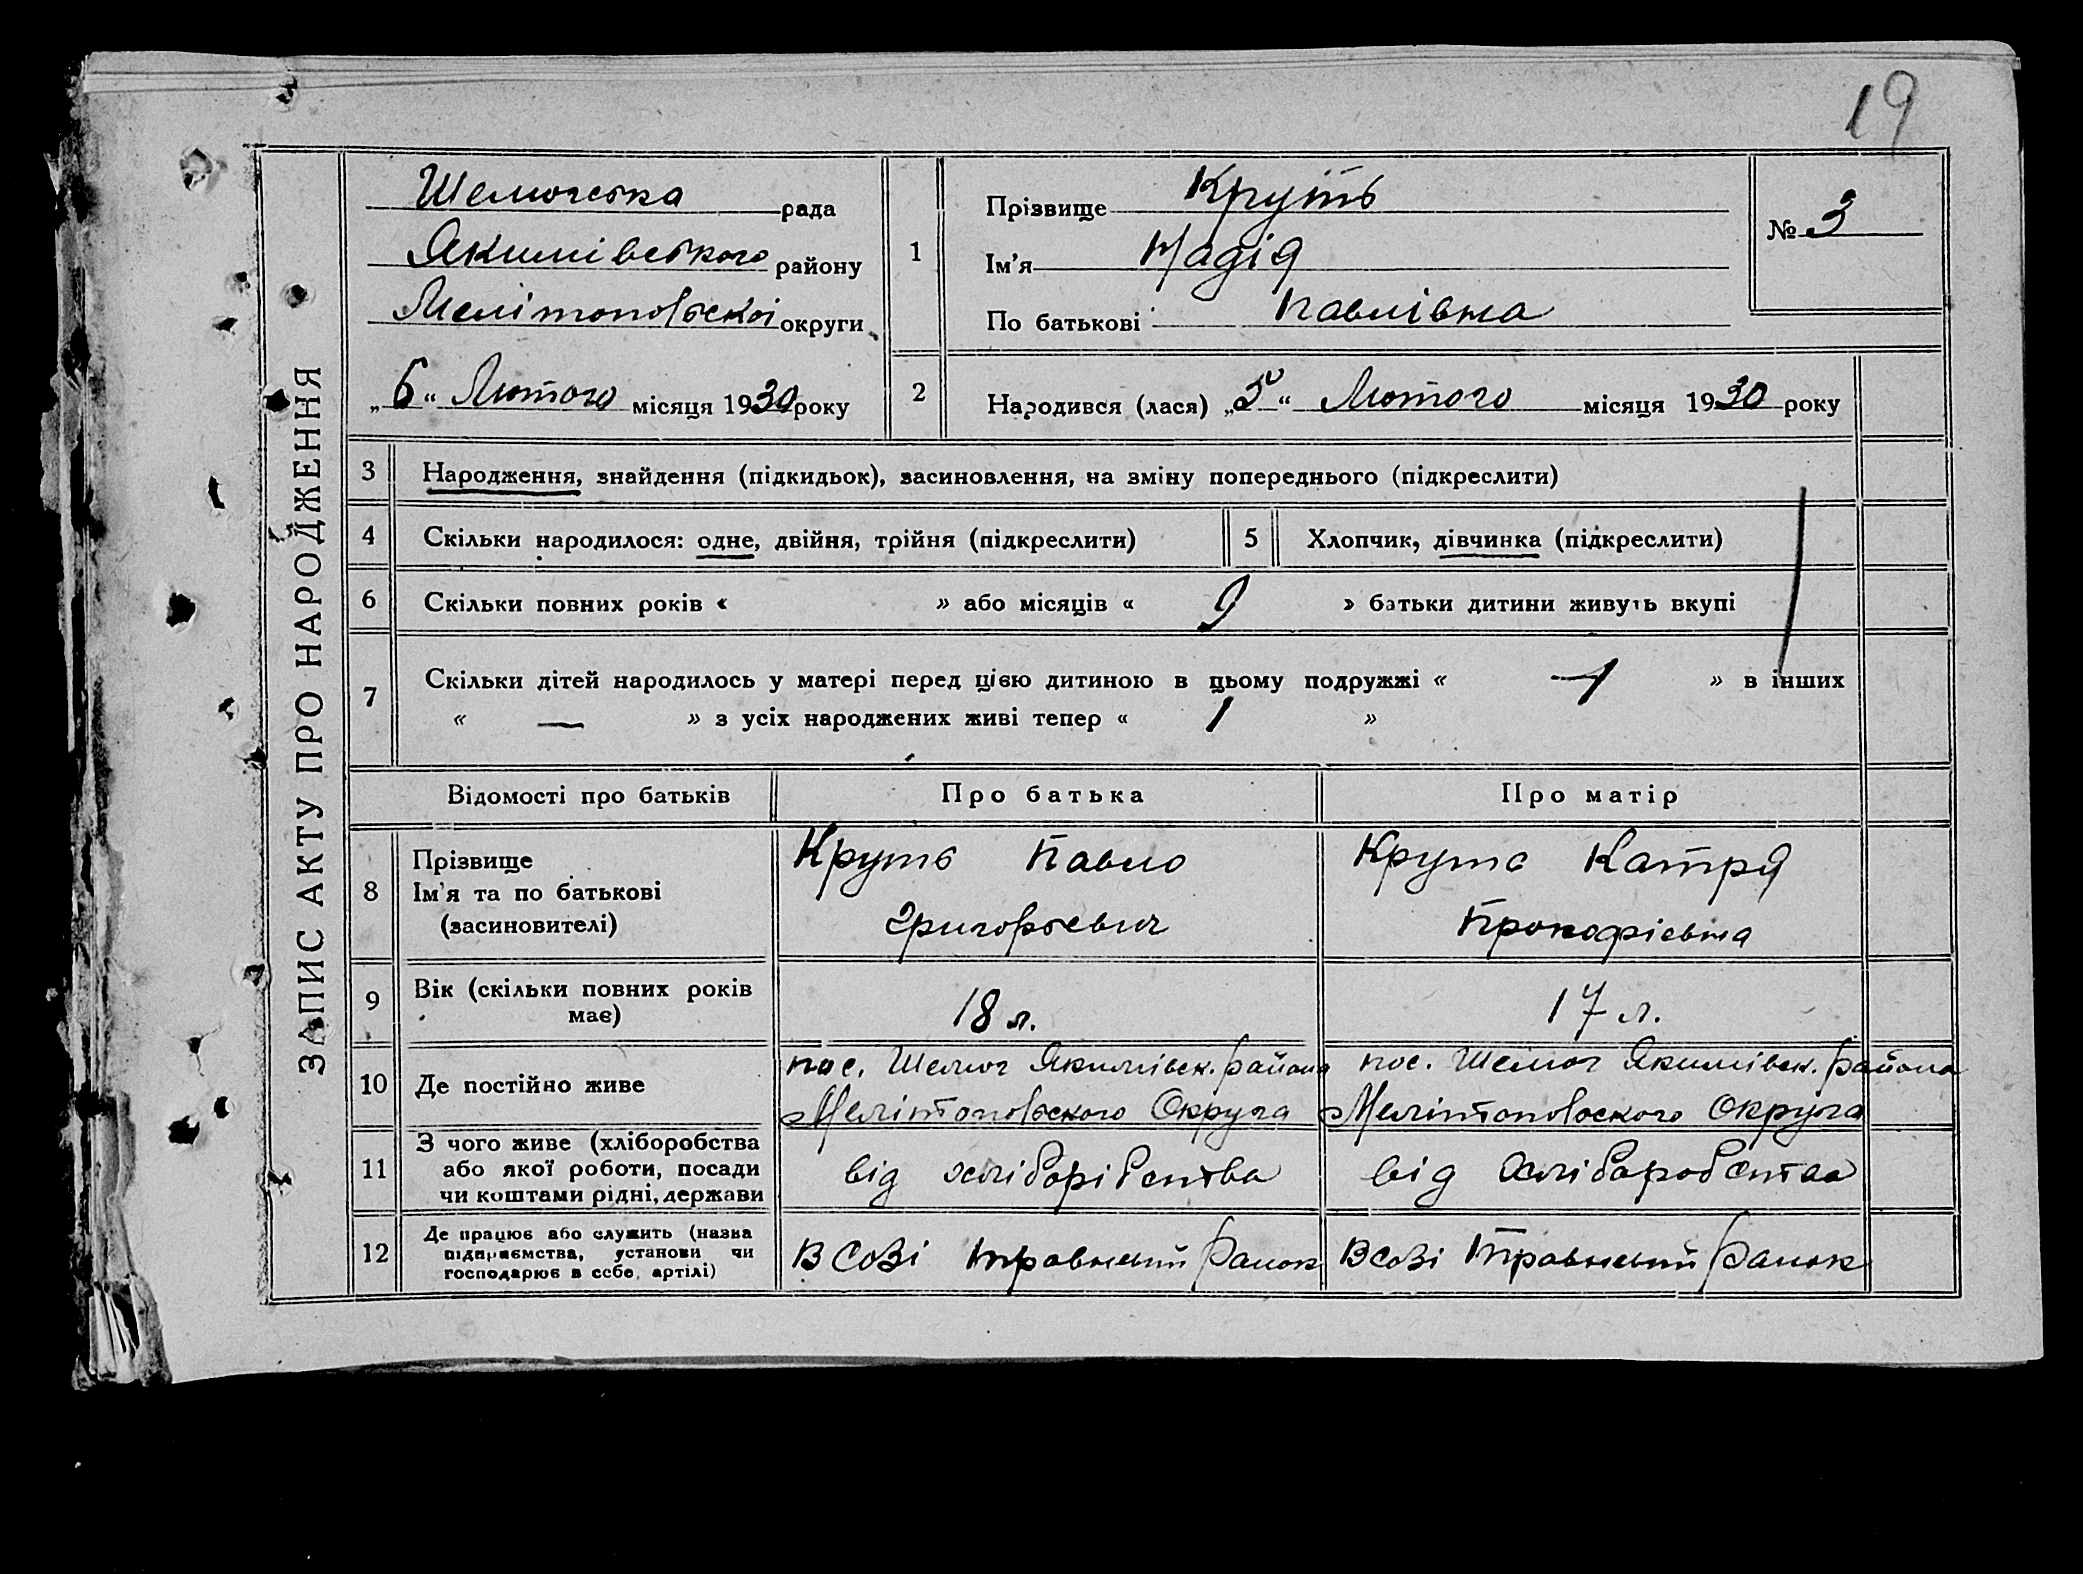 19
ЗАПИС АКТУ ПРО НАРОДЖЕННЯ
Шелюгська рада
Якимівського району
Мелітопольскої округи
„6“ Лютого місяця 1930 року
1
Прізвище Круть
Ім’я Надія
По батькові Павлівна
№ 3
2
Народився (лася) „5“ Лютого місяця 1930 року
3 Народження, знайдення (підкидьок), засиновлення, на зміну попереднього (підкреслити)
4 Скільки народилося: одне, двійня, трійня (підкреслити) 5 Хлопчик, дівчинка (підкреслити)
6 Скільки повних років « » або місяців « 9 » батьки дитини живуть вкупі
7 Скільки дітей народилось у матері перед цією дитиною в цьому подружжі « 1 » в інших
« — » з усіх народжених живі тепер « 1 »
Відомості про батьків Про батька Про матір
8 Прізвище Ім’я та по батькові (засиновителі)
Круть Павло Григорьевич
Круть Катря Прокофієвна
9 Вік (скільки повних років має) 18 л. 17 л.
10 Де постійно живе
пос. Шелюг Якимівск. района Мелітопольского Округа
пос. Шелюг Якимівск. района Мелітопольского Округа
11 З чого живе (хліборобства або якої роботи, посади чи коштами рідні, держави
від хліборібства
від Хліборобства
12 Де працює або служить (назва підприємства, установи чи господарює в себе, артілі)
В Созі травневий ранок
В созі травневий ранок